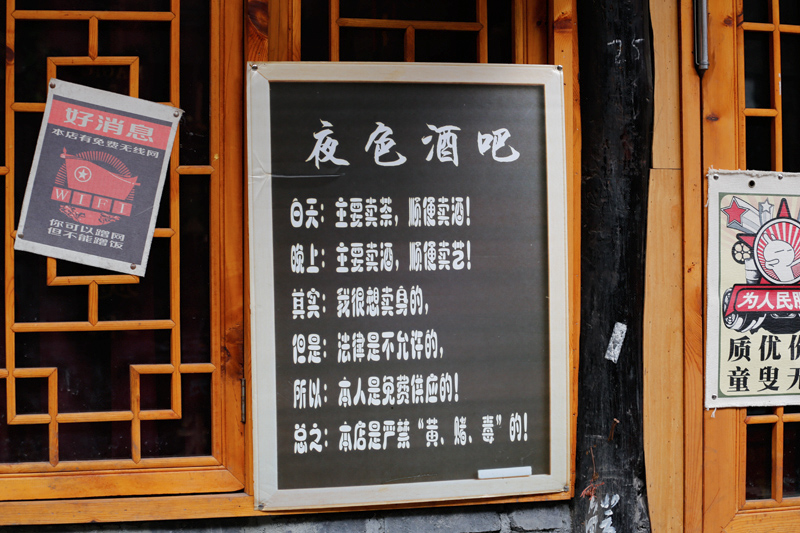 好消息
本店有免费无线网
WIFI
你可以蹭网
但不能蹭饭
夜色酒吧
白天：主要卖茶，顺便卖酒！
晚上：主要卖酒，顺便卖艺！
其实：我很想卖身的，
但是：法律是不允许的，
所以：本人是免费供应的！
总之：本店是严禁“黄、赌、毒”的！
为人民服
质优价
童叟无